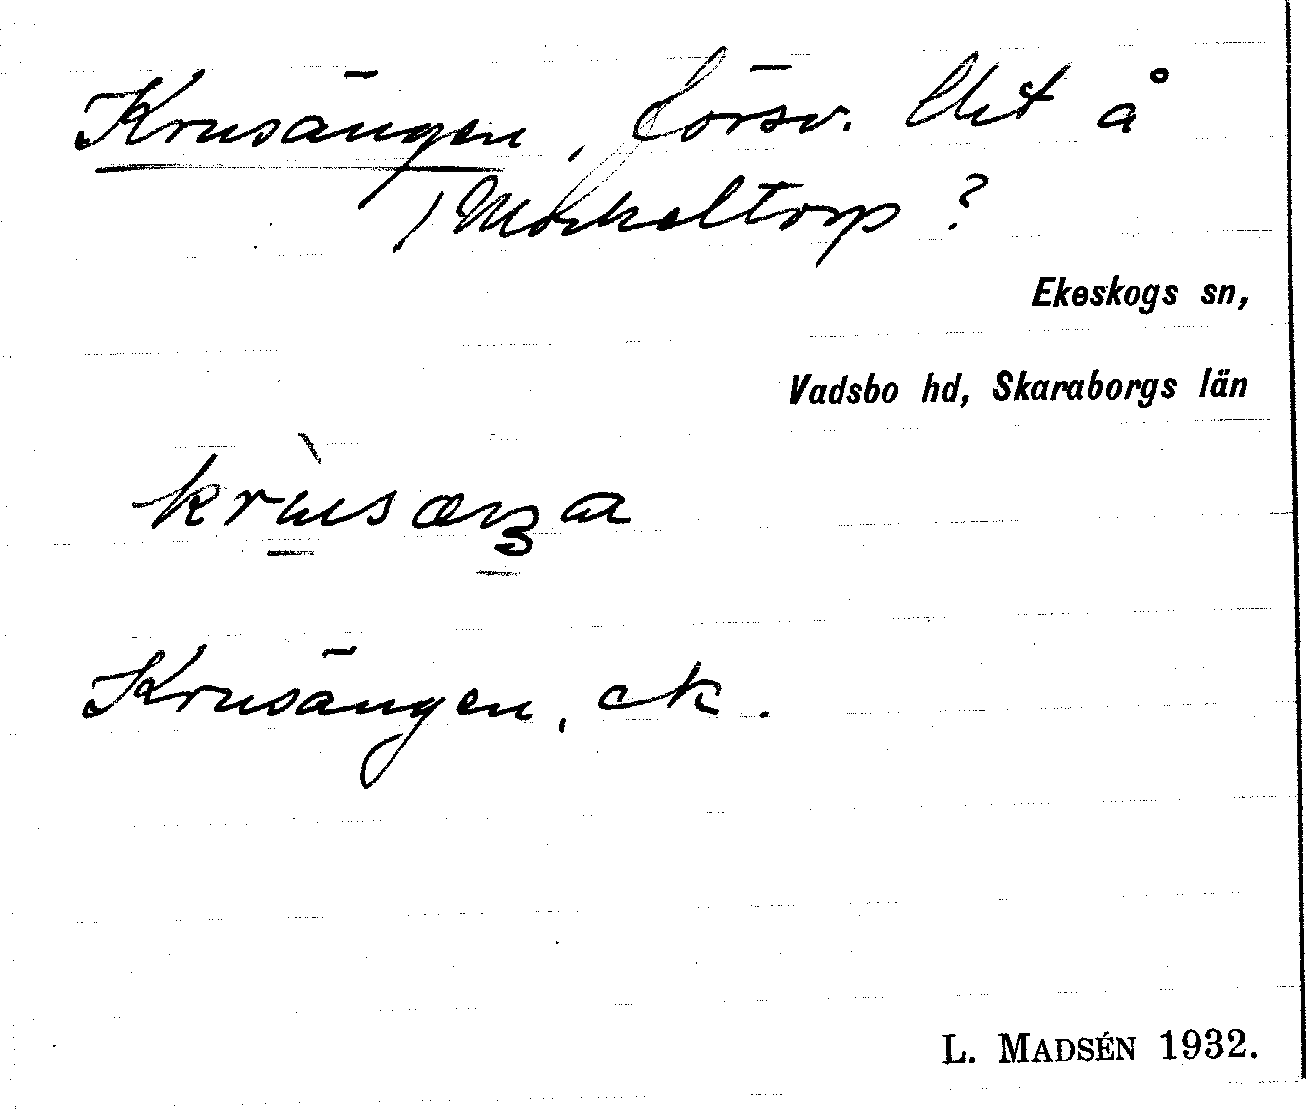 Krusängen, försv. lht å
/Mörkeltorp ?
Ekeskogs sn,
Vadsbo hd, Skaraborgs län
Krusängen, ek.
L. MADSÉN 1932.